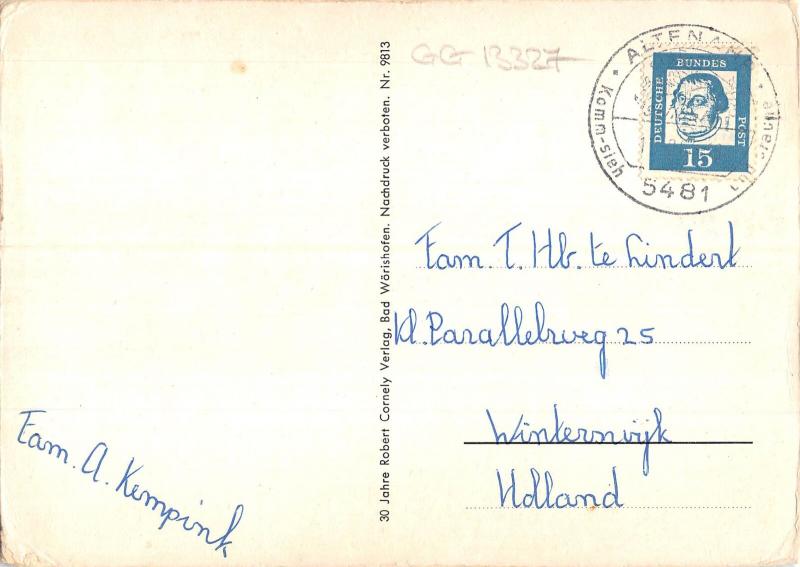 GG 13327
ALTENAHR
Komm-sieh
5481
DEUTSCHE
BUNDES
POST
15
30 Jahre Robert Cornely Verlag, Bad Wörishofen. Nachdruck verboten. Nr. 9813
Fam. T. Hb. te Lindert
Kl. Parallelweg 25
Winterswijk
Holland
Fam. A. Kempink